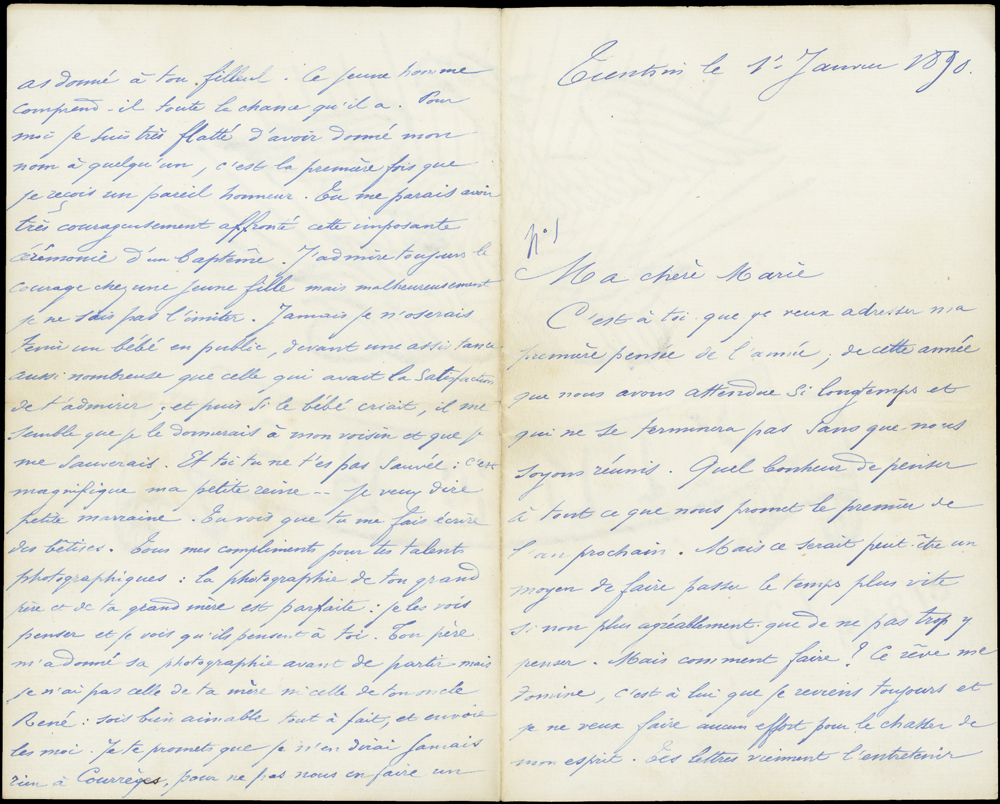 Tientsin le 1r Janvier 1890.
No 1
Ma chère Marie
C'est à toi que je veux adresser ma
première pensée de l'année ; de cette année
que nous avons attendue si longtemps et
qui ne se terminera pas sans que nous
soyons réunis. Quel bonheur de penser
à tout ce que nous promet le premier de
l'an prochain. Mais ce serait peut-être un
moyen de faire passer le temps plus vite
si non plus agréablement que de ne pas trop y
penser. Mais comment faire ? Ce rêve me
domine, c'est à lui que je reviens toujours et
je ne veux faire aucun effort pour le chasser de
mon esprit. Tes lettres viennent l'entretenir
as donné à ton filleul. Ce jeune homme
comprend-il toute la chance qu'il a. Pour
moi je suis très flatté d'avoir donné mon
nom à quelqu'un, c'est la première fois que
je reçois un pareil honneur. Tu me parais avoir
très courageusement affronté cette imposante
cérémonie d'un baptême. J'admire toujours le
courage chez une jeune fille mais malheureusement
je ne sais pas l'imiter. Jamais je n'oserais
tenir un bébé en public, devant une assistance
aussi nombreuse que celle qui avait la satisfaction
de t'admirer ; et puis si le bébé criait, il me
semble que je le donnerais à mon voisin et que je
me sauverais. Et toi tu ne t'es pas sauvée : c'est
magnifique ma petite reine -- je veux dire
petite marraine. Tu vois que tu me fais écrire
des bêtises. Tous mes compliments pour tes talents
photographiques : la photographie de ton grand
père et de ta grand mère est parfaite : je les vois
penser et je vois qu'ils pensent à toi. Ton père
m'a donné sa photographie avant de partir mais
je n'ai pas celle de ta mère ni celle de ton oncle
René : sois bien aimable tout à fait, et envoie
les moi. Je te promet que je n'en dirai jamais
rien à Courrèges, pour ne pas nous en faire un